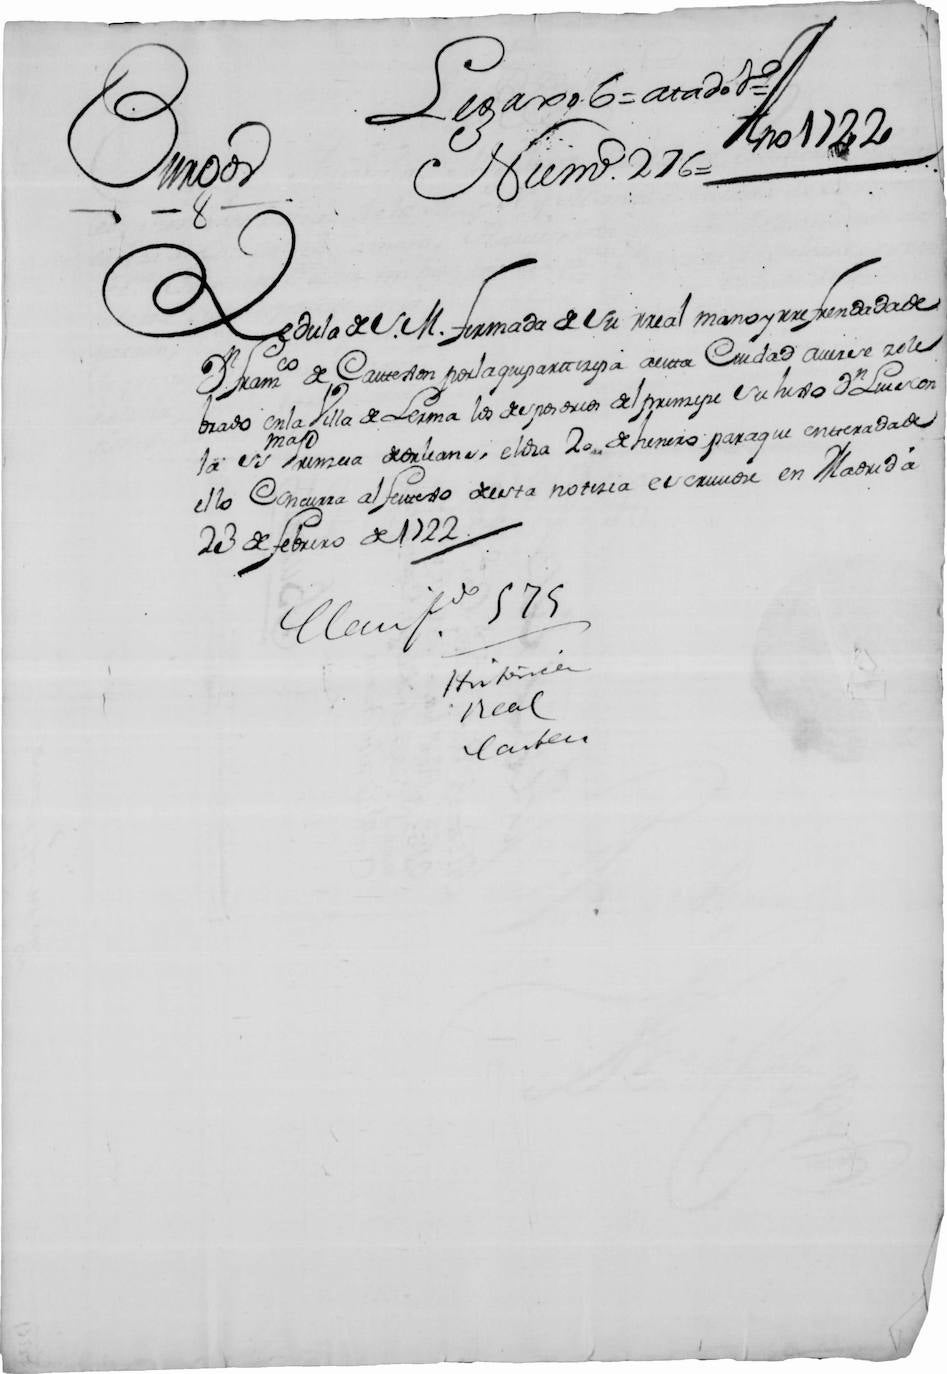 Burgos
8
Legaxo. 6 = atado 1º =
Año 1722
Númº. 276 =
Zedula de S. M. firmada de su rreal mano y rrefrendada de
Dn. Franco de Castexon por la que partizipa a esta Ciudad averse zele
brado en la Villa de Lerma los desposorios del principe su hijo Dn Luis con
la ssma Princesa de orleans, el dia 20 de henero para que enterada de
ello Concurra al festexo de esta notizia es su fecha en Madrid á
23 de febrero de 1722
Clasifdo 575
Histórica
Real
Cartas